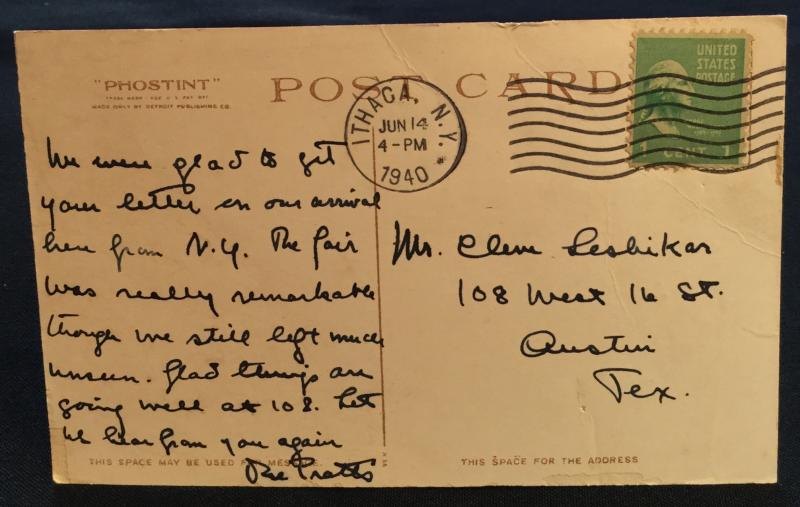 "PHOSTINT"
MADE ONLY BY DETROIT PUBLISHING CO.
POST CARD
ITHACA, N.Y.
JUN 14
4-PM
1940
UNITED
STATES
POSTAGE
1 CENT 1
We were glad to get
your letter on our arrival
here from N.Y. The fair
was really remarkable
though we still left much
unseen. Glad things are
going well at 108. Let
us hear from you again
The Pratts
Mr. Clem Leshikar
108 West 16 St.
Austin
Tex.
THIS SPACE MAY BE USED FOR MESSAGE.
THIS SPACE FOR THE ADDRESS